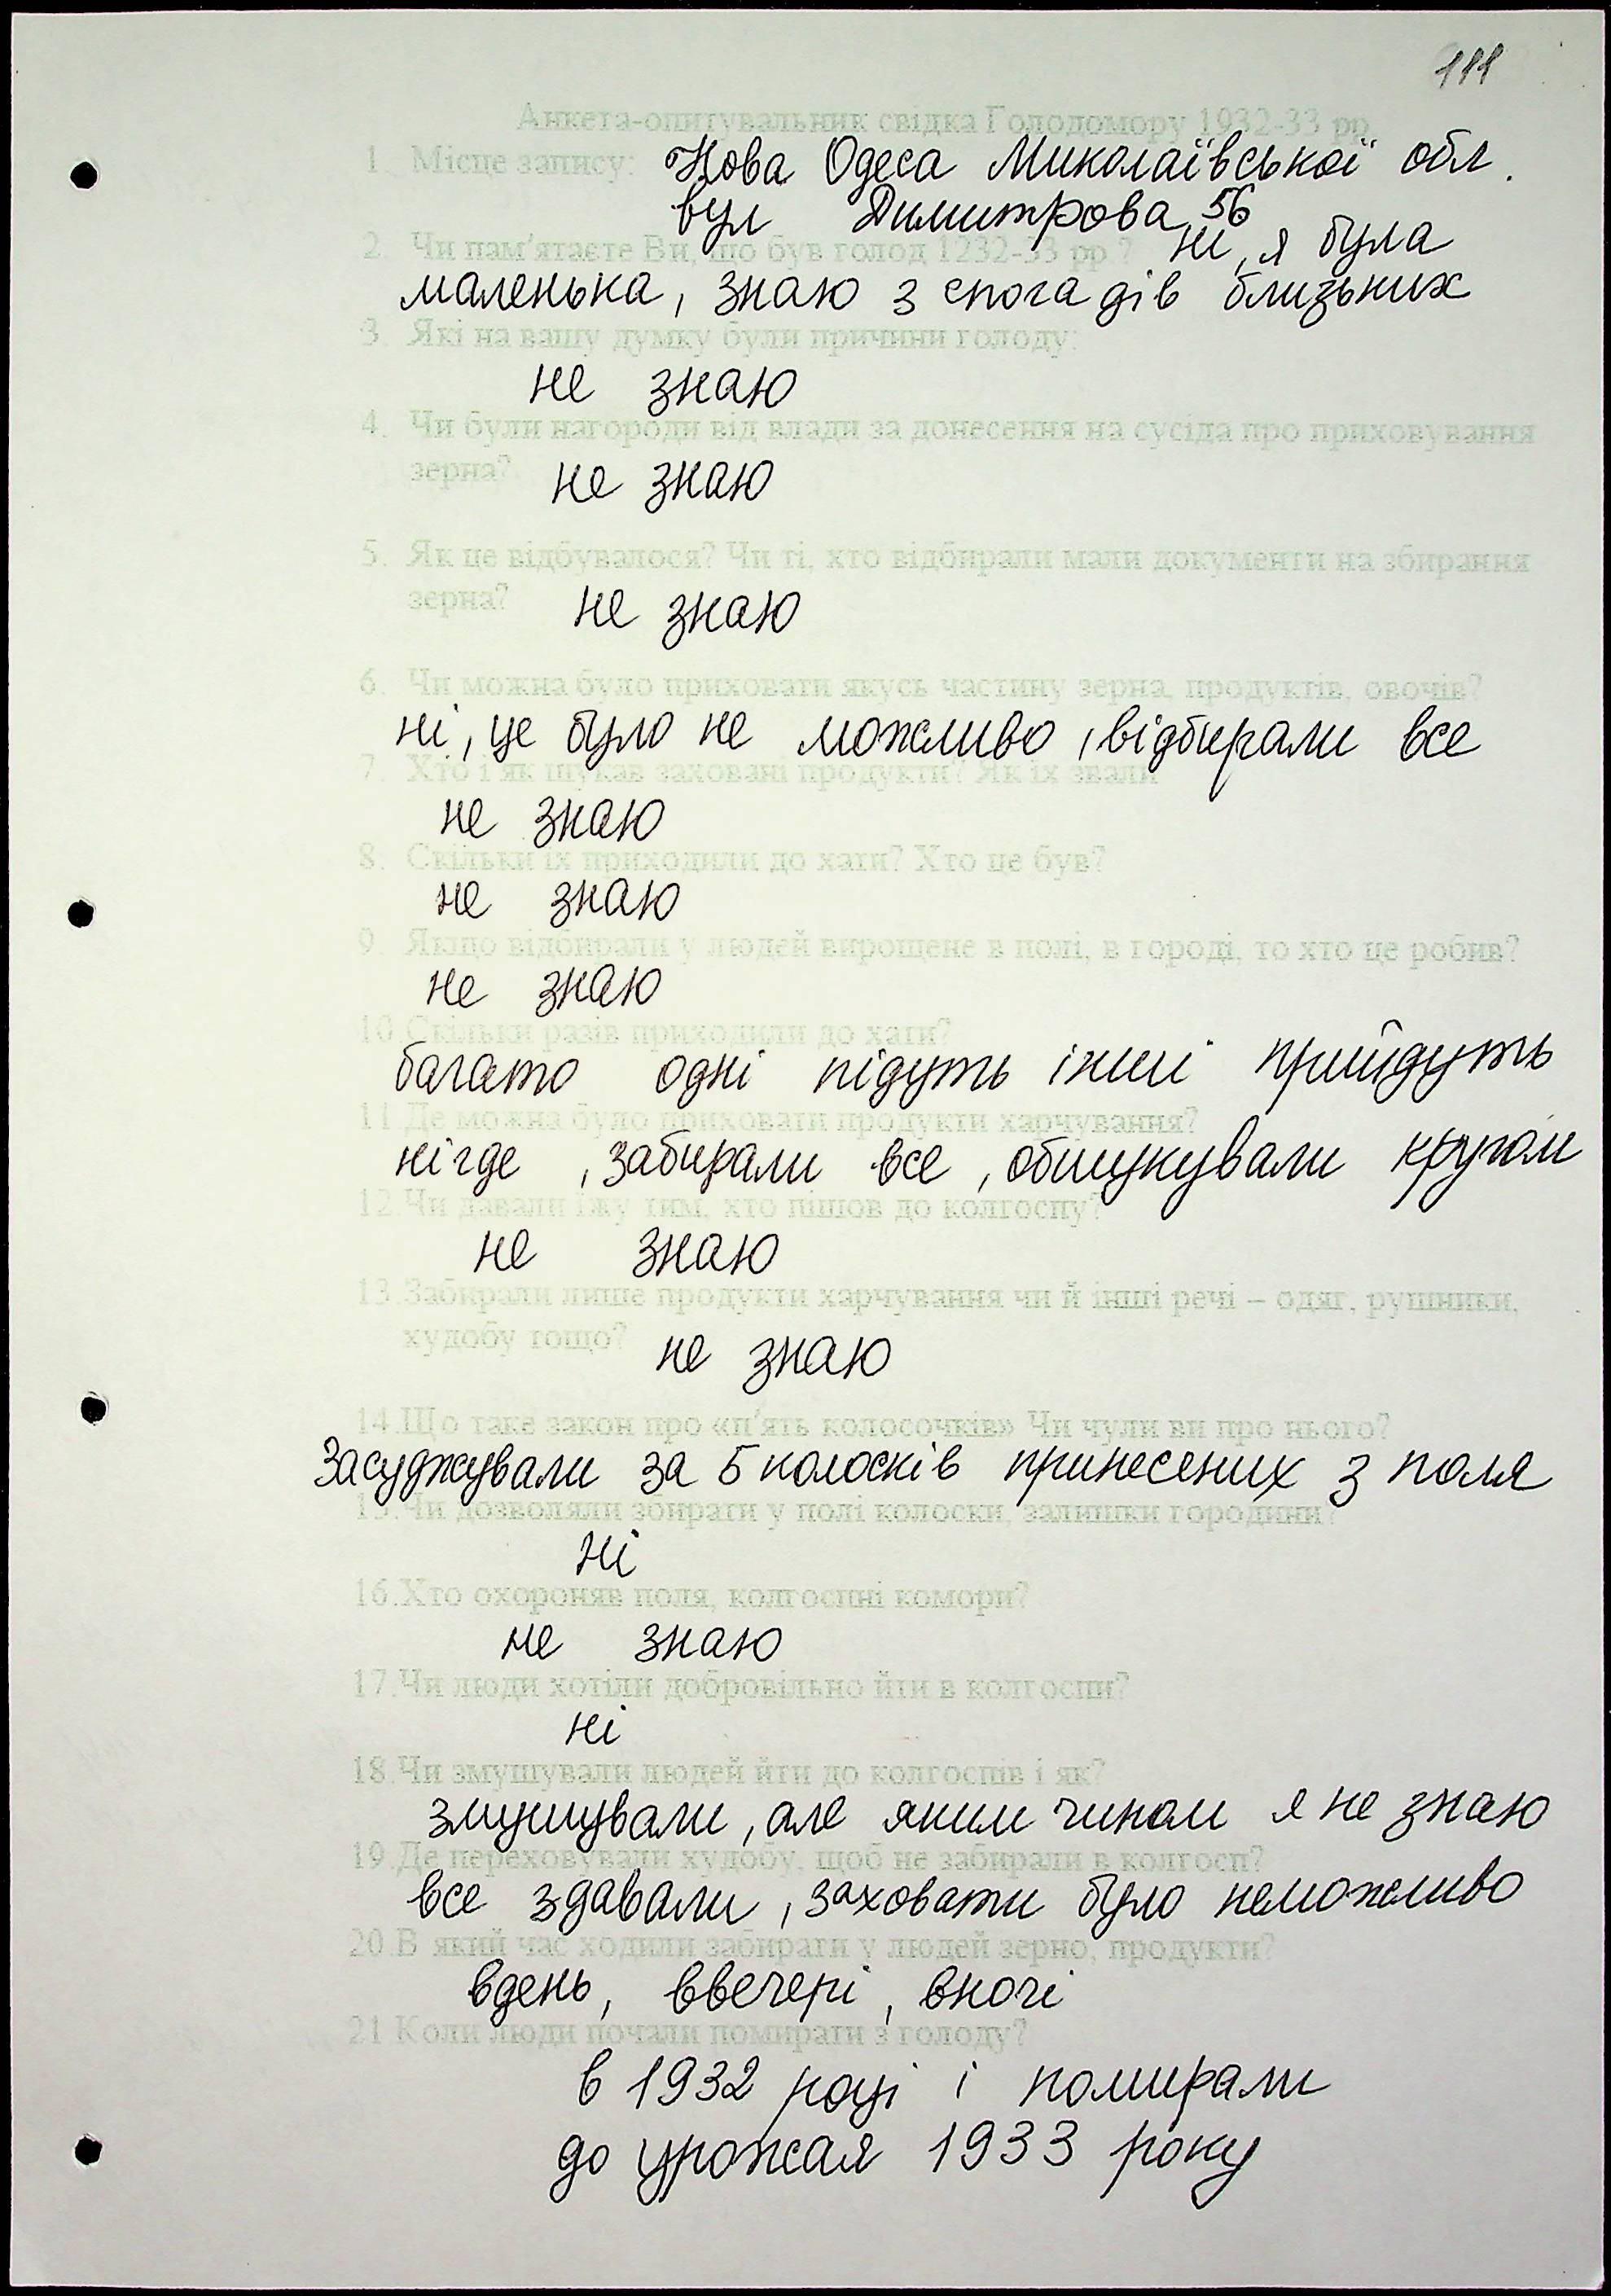 111
Анкета-опитувальник свідка Голодомору 1932-33 рр.
1. Місце запису: Нова Одеса Миколаївської обл.
вул Димитрова, 56
2. Чи пам'ятаєте Ви, що був голод 1232-33 рр.? ні, я була
маленька, знаю з спогадів близьких
3. Які на вашу думку були причини голоду:
не знаю
4. Чи були нагороди від влади за донесення на сусіда про приховування
зерна? не знаю
5. Як це відбувалося? Чи ті, хто відбирали мали документи на збирання
зерна? не знаю
6. Чи можна було приховати якусь частину зерна, продуктів, овочів?
ні, це було не можливо, відбирали все
7. Хто і як шукав заховані продукти? Як їх звали
не знаю
8. Скільки їх приходили до хати? Хто це був?
не знаю
9. Якщо відбирали у людей вирощене в полі, в городі, то хто це робив?
не знаю
10. Скільки разів приходили до хати?
багато одні підуть інші прийдуть
11. Де можна було приховати продукти харчування?
нігде, забирали все, обшукували кругом
12. Чи давали їжу тим, хто пішов до колгоспу?
не знаю
13. Забирали лише продукти харчування чи й інші речі – одяг, рушники,
худобу тощо? не знаю
14. Що таке закон про «п'ять колосочків» Чи чули ви про нього?
Засуджували за 5 колосків принесених з поля
15. Чи дозволяли збирати у полі колоски, залишки городини?
ні
16. Хто охороняв поля, колгоспні комори?
не знаю
17. Чи люди хотіли добровільно йти в колгоспи?
ні
18. Чи змушували людей йти до колгоспів і як?
змушували, але яким чином я не знаю
19. Де переховували худобу, щоб не забирали в колгосп?
все здавали, заховати було неможливо
20. В який час ходили забирати у людей зерно, продукти?
вдень, ввечері, вночі
21 Коли люди почали помирати з голоду?
в 1932 році і помирали
до урожая 1933 року